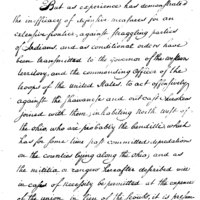 But as experience has demonstrated
the inefficacy of defensive measures for an
extensive frontier, against straggling parties
of Indians, and as conditional orders have
been transmitted to the governor of the western
territory, and the commanding officer of the
troops of the United States, to act offensively,
against the Shawanese and outcast Cherokees
joined with them, inhabiting north west of
the Ohio who are probably the banditti which
has for some time past committed depredations
on the counties lying along the Ohio; and as
the militia, or rangers hereafter deposited will
in cases of necessity be permitted at the expence
of the union, in lieu of the scouts, it is presum